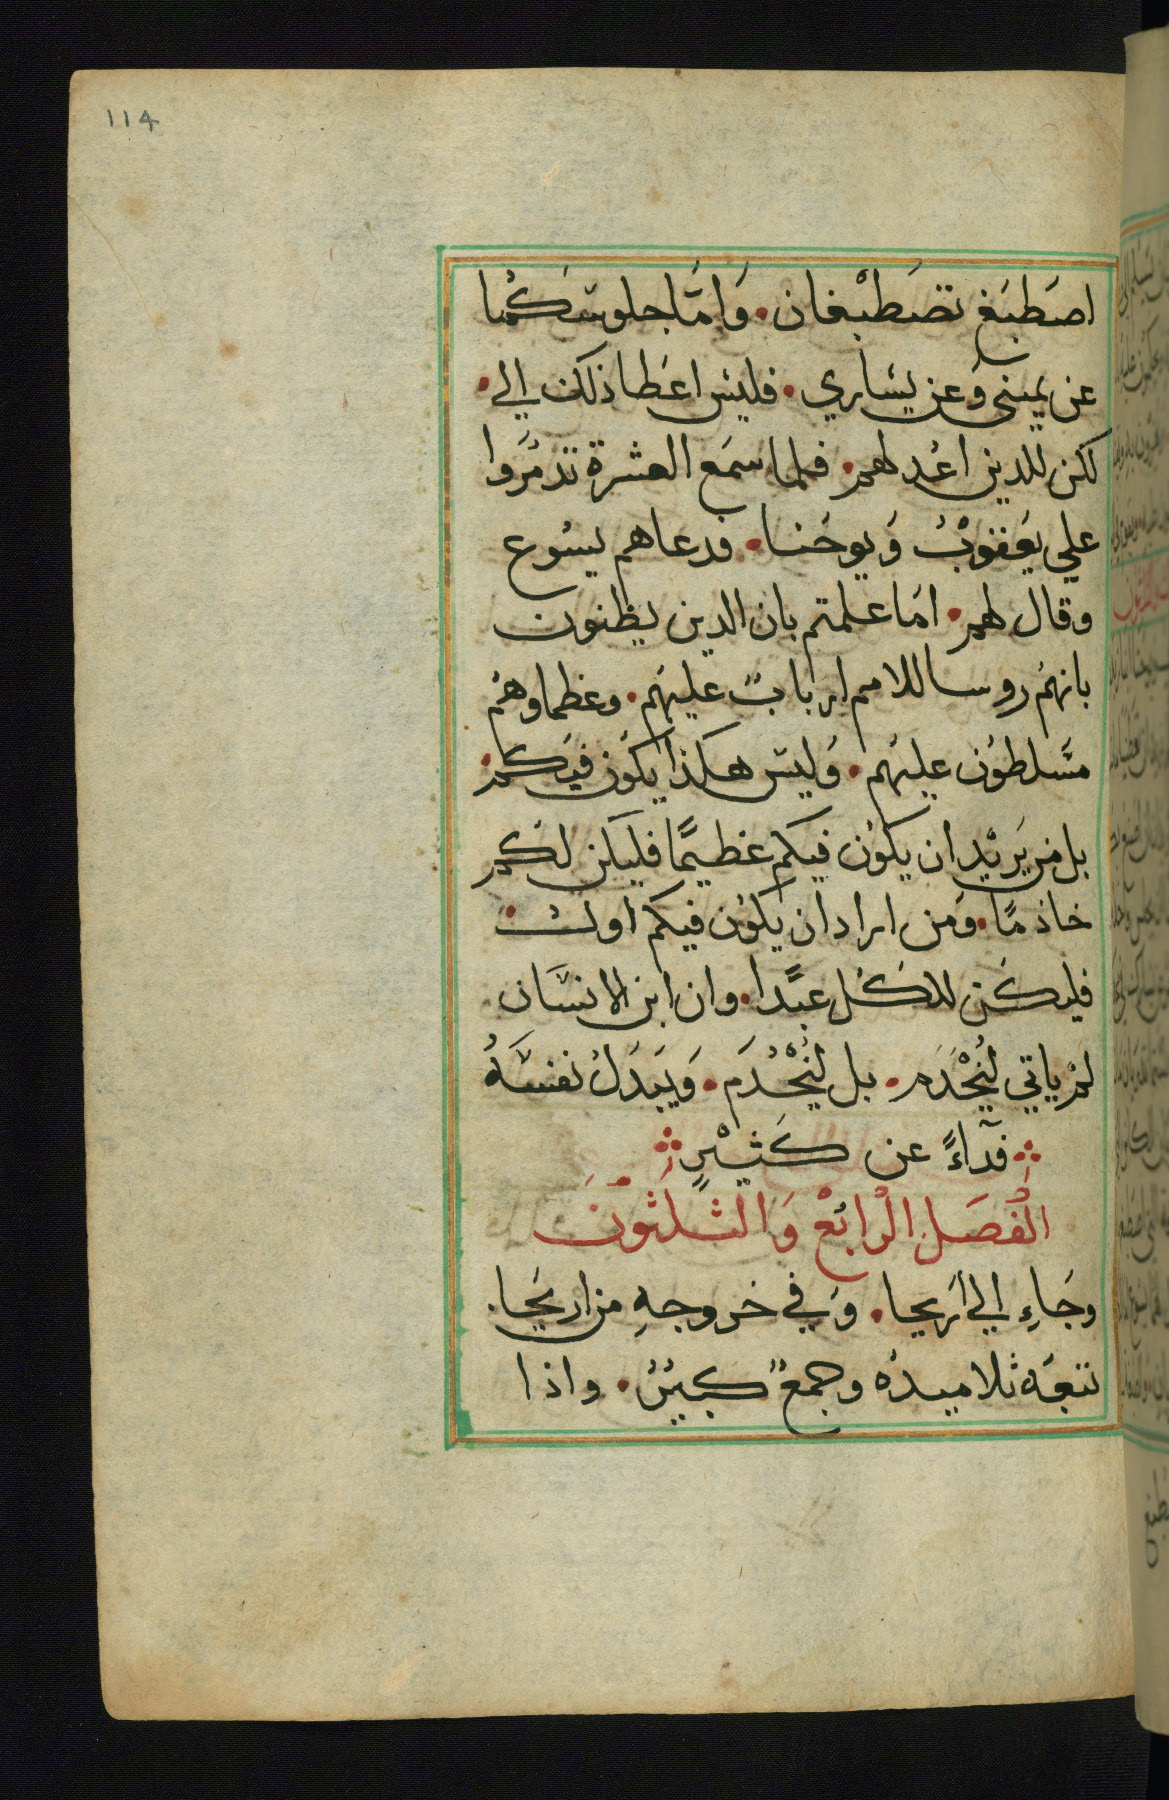 ١١4
اصَطبَغ تصَطبْغان. وَامّا جلوسَكُما
عن يميني وَعن يسَاري. فليسَ اعَطا ذلك الي.
لكن للدين اعُد لهم. فلما سمَع العشرة تذمَّروا
علي يَعقوْبُ وَيوحَنا. فدعاهم يسُوع
وقال لهم. امَا علمتم بان الدين يظنون
بانهمُ روسا للامم اربابٌ عليهَم. وعظماوهُم
مسَلطوُن عليَهم. وَليسَ هكذا يكوُن فيَكم.
بل من يَريْد ان يكوُن فيكم عظيمًا فليكن لكُم
خاذمًا. وَمن اراد ان يكوُن فيكم اولٌ.
فليكَن للكُل عبَدًا. وان ابن الانسَان
لم ياتي ليُخْدَم. بل ليُخْدُم. وَيَبدَلُ نفسَهُ
فدآءً عن كَثيْرٍ
الْفَصَل الْرَابْعْ وَالثلثوْنَ
وجَاءِ الي اَريحا. وَفي خروجهِ من اريحَا.
تتبعَه تلاميدُه وجمعٌ كبيُرٌ. واذا